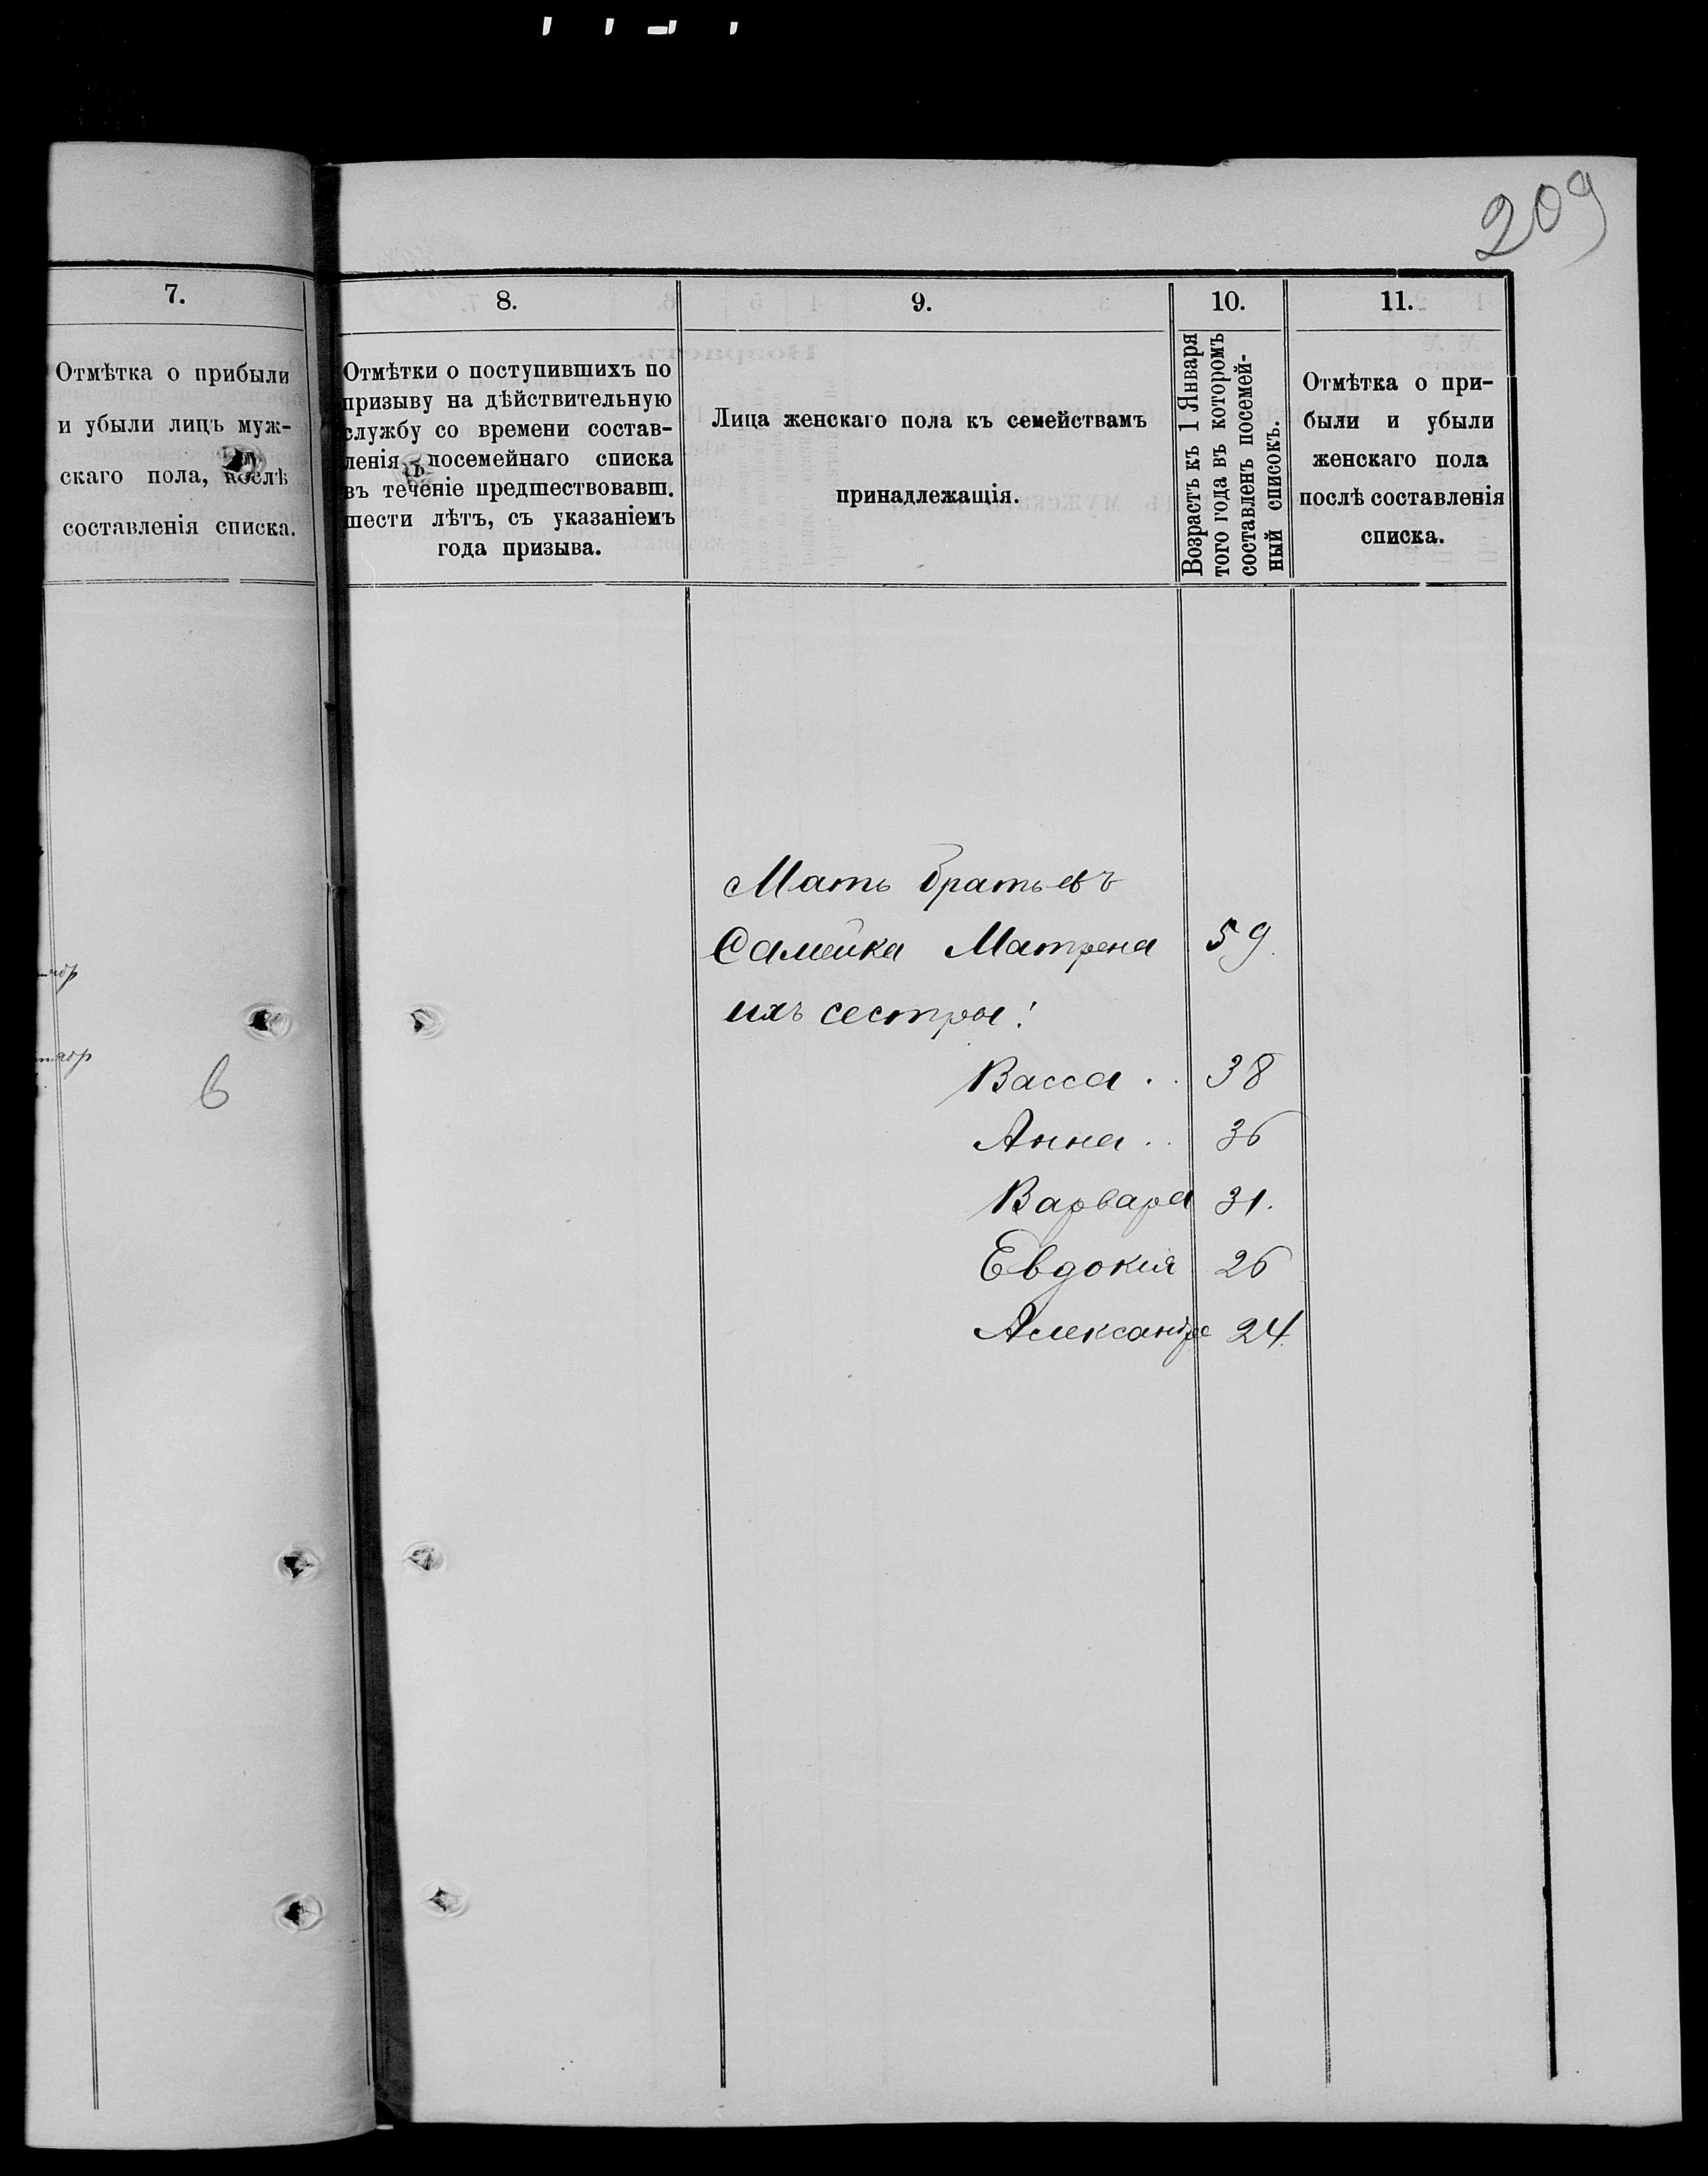 209
7.
Отмѣтка о прибыли
и убыли лицъ муж-
скаго пола, послѣ
составленія списка.
6
8.
Отмѣтки о поступившихъ по
призыву на дѣйствительную
службу со времени состав-
ленія посемейнаго списка
въ теченіе предшествовавш.
шести лѣтъ, съ указаніемъ
года призыва.
9.
Лица женскаго пола къ семействамъ
принадлежащія.
10.
Возрастъ къ 1 Января
того года въ которомъ
составленъ посемей-
ный списокъ.
11.
Отмѣтка о при-
были и убыли
женскаго пола
послѣ составленія
списка.
Мать братьевъ
Самойка Матрена 59.
ихъ сестры:
Васса . . 38
Анна . . 36
Варвара 31.
Евдокия 26
Александра 24